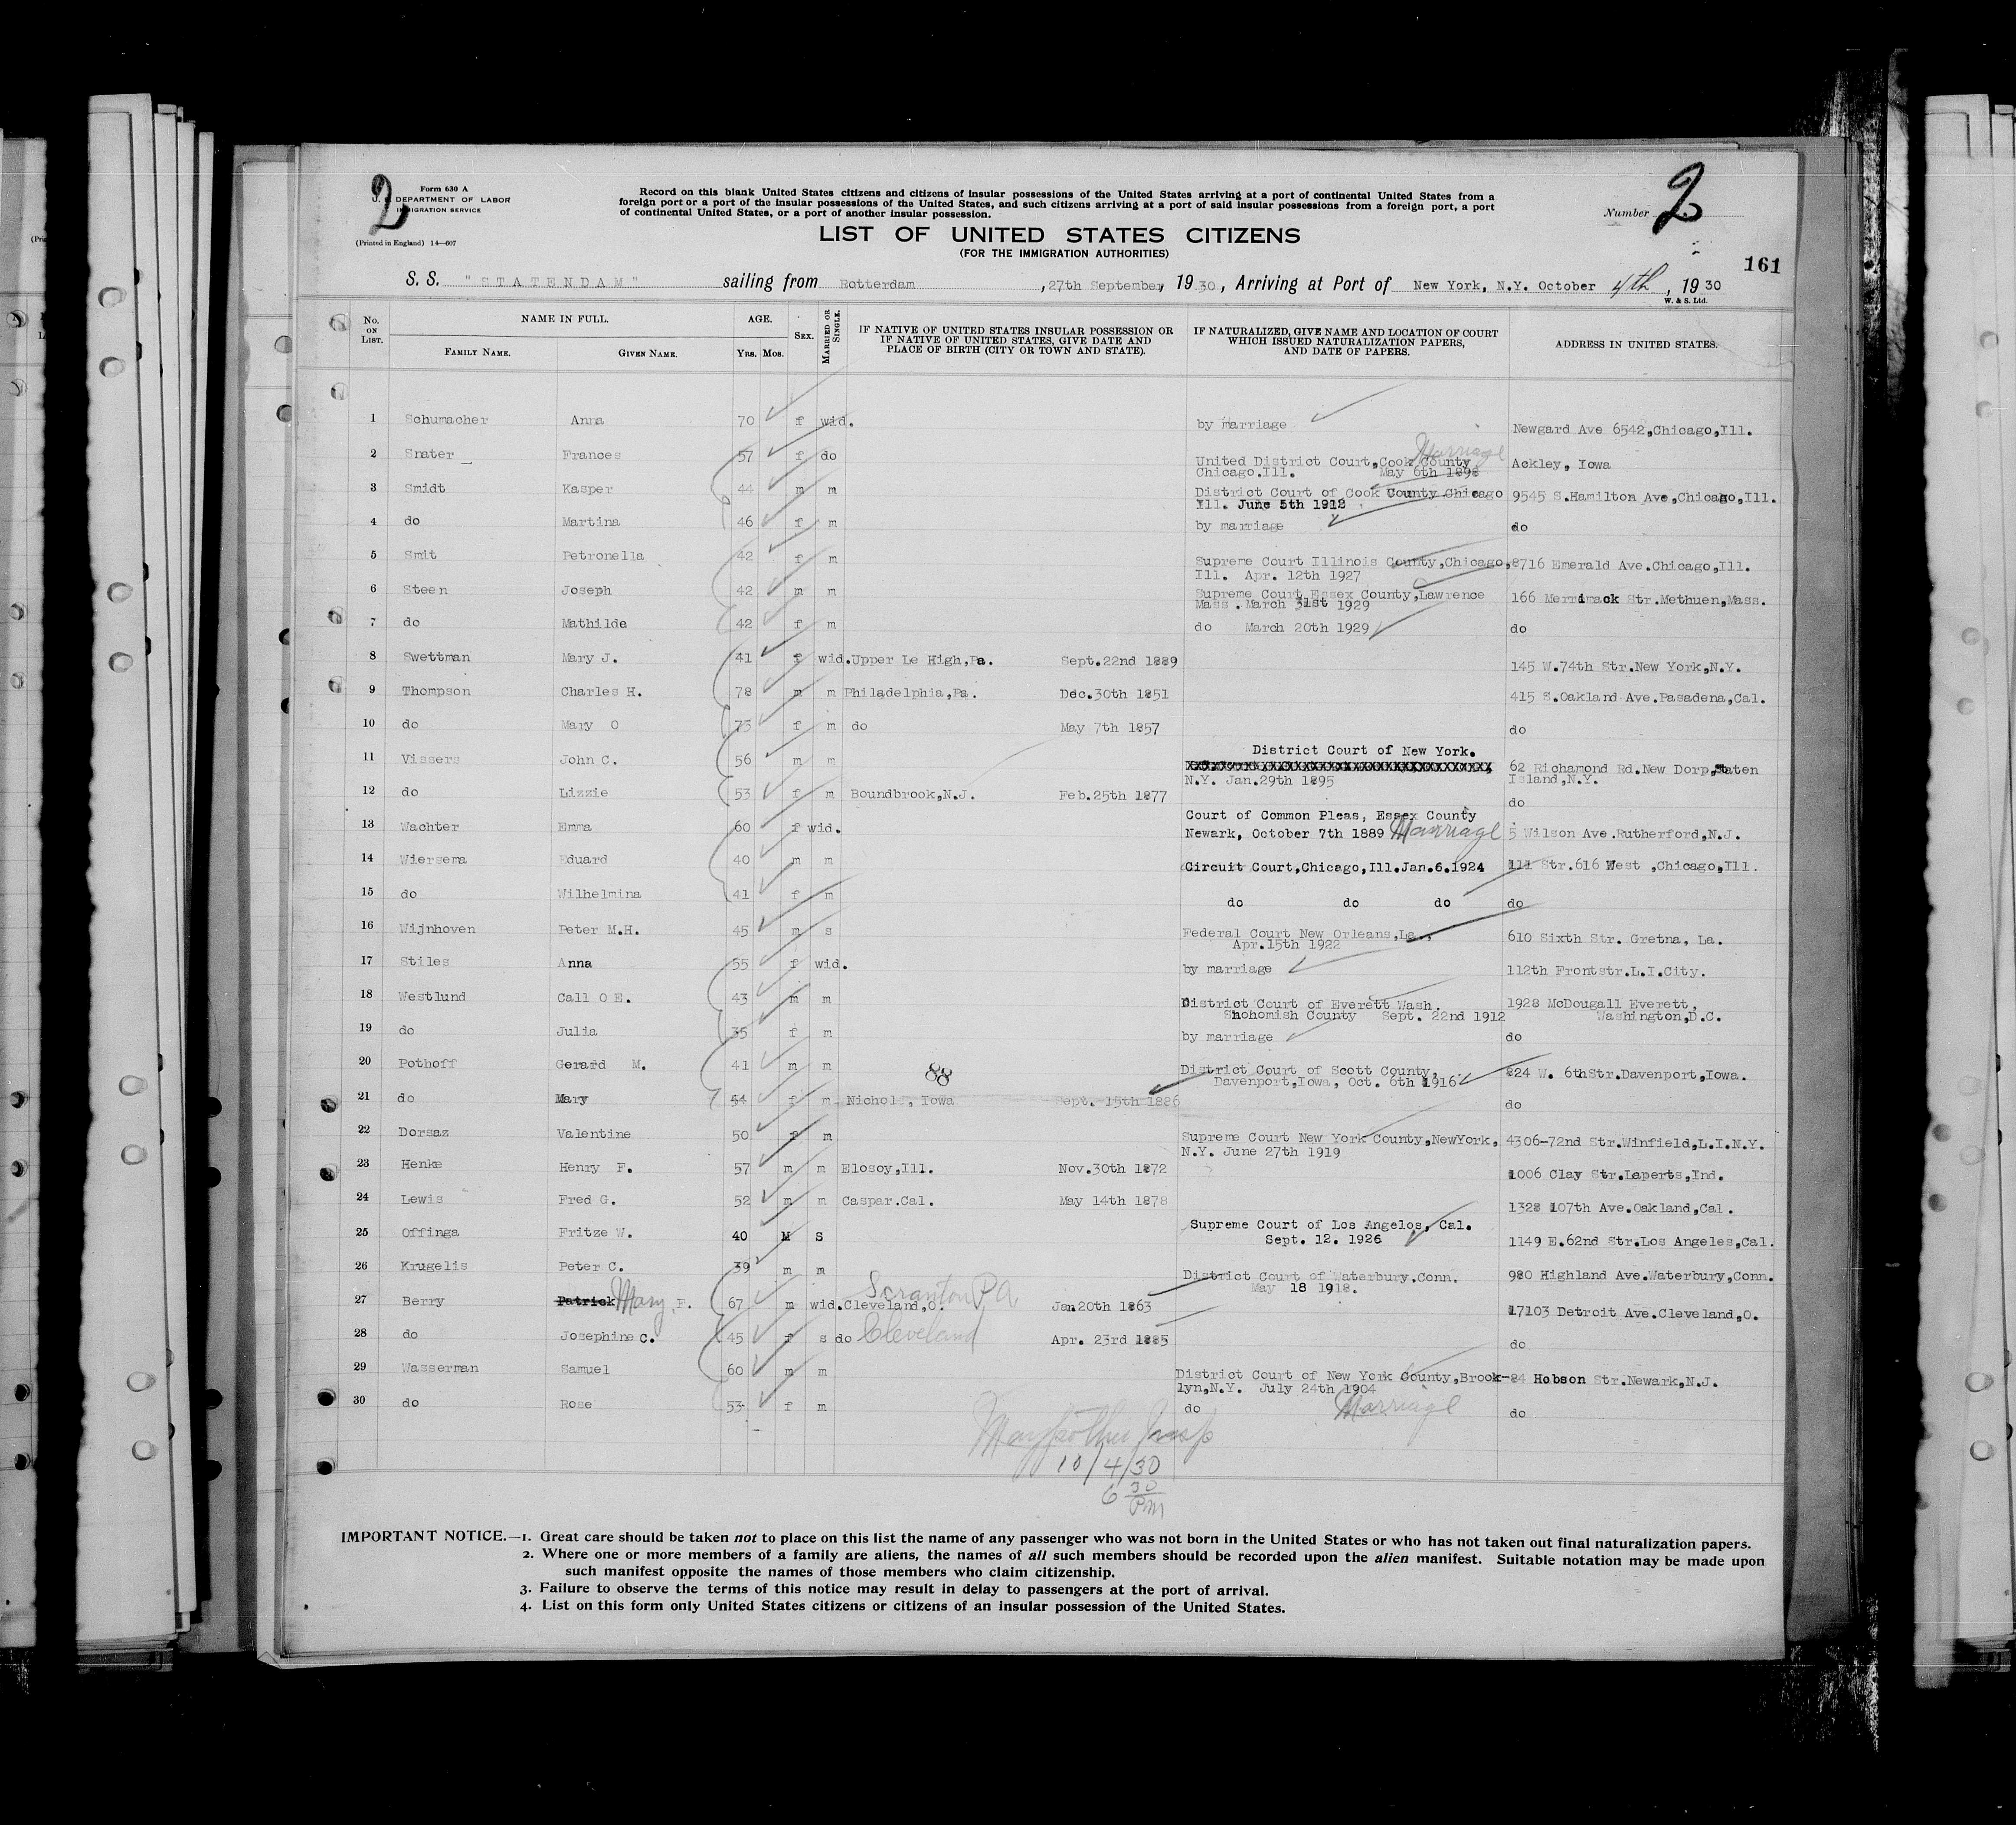 2
Form 630 A
U. S. DEPARTMENT OF LABOR
IMMIGRATION SERVICE
(Printed in England) 14—607
Record on this blank United States citizens and citizens of insular possessions of the United States arriving at a port of continental United States from a
foreign port or a port of the insular possessions of the United States, and such citizens arriving at a port of said insular possessions from a foreign port, a port
of continental United States, or a port of another insular possession.
Number 2
LIST OF UNITED STATES CITIZENS
(FOR THE IMMIGRATION AUTHORITIES)
161
S. S. "STATENDAM" sailing from Rotterdam, 27th September, 1930, Arriving at Port of New York, N.Y. October 4th, 1930
W. & S. Ltd.
No. ON LIST. NAME IN FULL. AGE. SEX. MARRIED OR SINGLE. IF NATIVE OF UNITED STATES INSULAR POSSESSION OR IF NATIVE OF UNITED STATES, GIVE DATE AND PLACE OF BIRTH (CITY OR TOWN AND STATE). IF NATURALIZED, GIVE NAME AND LOCATION OF COURT WHICH ISSUED NATURALIZATION PAPERS, AND DATE OF PAPERS. ADDRESS IN UNITED STATES.
FAMILY NAME. GIVEN NAME. YRS. MOS.
1 Schumacher Anna 70 f wid. by marriage Newgard Ave 6542,Chicago,Ill.
2 Snater Frances 57 f do United District Court,Cook County Marriage Ackley, Iowa
Chicago.Ill. May 6th 1898
3 Smidt Kasper 44 m m District Court of Cook County Chicago 9545 S.Hamilton Ave,Chicago,Ill.
Ill. June 5th 1912
4 do Martina 46 f m by marriage do
5 Smit Petronella 42 f m Supreme Court Illinois County,Chicago, 8716 Emerald Ave.Chicago,Ill.
Ill. Apr. 12th 1927
6 Steen Joseph 42 m m Supreme Court Essex County,Lawrence 166 Merrimack Str.Methuen,Mass.
Mass. March 31st 1929
7 do Mathilde 42 f m do March 20th 1929 do
8 Swettman Mary J. 41 f wid. Upper Le High,Pa. Sept.22nd 1889 145 W.74th Str.New York,N.Y.
9 Thompson Charles H. 78 m m Philadelphia,Pa. Dec.30th 1851 415 S.Oakland Ave.Pasadena,Cal.
10 do Mary O 73 f m do May 7th 1857 do
11 Vissers John C. 56 m m District Court of New York. 62 Richamond Rd.New Dorp,Staten
N.Y. Jan.29th 1895 Island,N.Y.
12 do Lizzie 53 f m Boundbrook,N.J. Feb.25th 1877 do
13 Wachter Emma 60 f wid. Court of Common Pleas, Essex County
Newark, October 7th 1889 Marriage 5 Wilson Ave.Rutherford,N.J.
14 Wiersema Eduard 40 m m Circuit Court,Chicago,Ill.Jan.6.1924 111 Str.616 West ,Chicago,Ill.
15 do Wilhelmina 41 f m do do do do
16 Wijnhoven Peter M.H. 45 m s Federal Court New Orleans,La., 610 Sixth Str. Gretna, La.
Apr.15th 1922
17 Stiles Anna 55 f wid. by marriage 112th Frontstr.L.I.City.
18 Westlund Call O E. 43 m m District Court of Everett Wash. 1928 McDougall Everett,
Snohomish County Sept. 22nd 1912 Washington,D.C.
19 do Julia 35 f m by marriage do
20 Pothoff Gerard M. 41 m m District Court of Scott County, 824 W. 6thStr.Davenport,Iowa.
88 Davenport,Iowa, Oct. 6th 1916
21 do Mary 54 f m Nichols, Iowa Sept. 15th 1886 do
22 Dorsaz Valentine 50 f m Supreme Court New York County,NewYork, 4306-72nd Str.Winfield,L.I.N.Y.
N.Y. June 27th 1919
23 Henke Henry F. 57 m m Elosoy,Ill. Nov.30th 1872 1006 Clay Str.Laperts,Ind.
24 Lewis Fred G. 52 m m Caspar.Cal. May 14th 1878 1328 107th Ave.Oakland,Cal.
25 Offinga Fritze W. 40 M S Supreme Court of Los Angelos, Cal. 1149 E.62nd Str.Los Angeles,Cal.
Sept. 12. 1926
26 Krugelis Peter C. 39 m m District Court of Waterbury.Conn. 980 Highland Ave.Waterbury,Conn.
May 18 1918.
Scranton Pa
27 Berry Patrick Mary F. 67 m wid. Cleveland,O. Jan20th 1863 17103 Detroit Ave.Cleveland,O.
28 do Josephine C. 45 f s do Cleveland Apr. 23rd 1885 do
29 Wasserman Samuel 60 m m District Court of New York County,Brook- 84 Hobson Str.Newark,N.J.
lyn,N.Y. July 24th 1904
30 do Rose 53 f m do Marriage do
10/4/30
6 30 PM
IMPORTANT NOTICE.—1. Great care should be taken not to place on this list the name of any passenger who was not born in the United States or who has not taken out final naturalization papers.
2. Where one or more members of a family are aliens, the names of all such members should be recorded upon the alien manifest. Suitable notation may be made upon
such manifest opposite the names of those members who claim citizenship.
3. Failure to observe the terms of this notice may result in delay to passengers at the port of arrival.
4. List on this form only United States citizens or citizens of an insular possession of the United States.